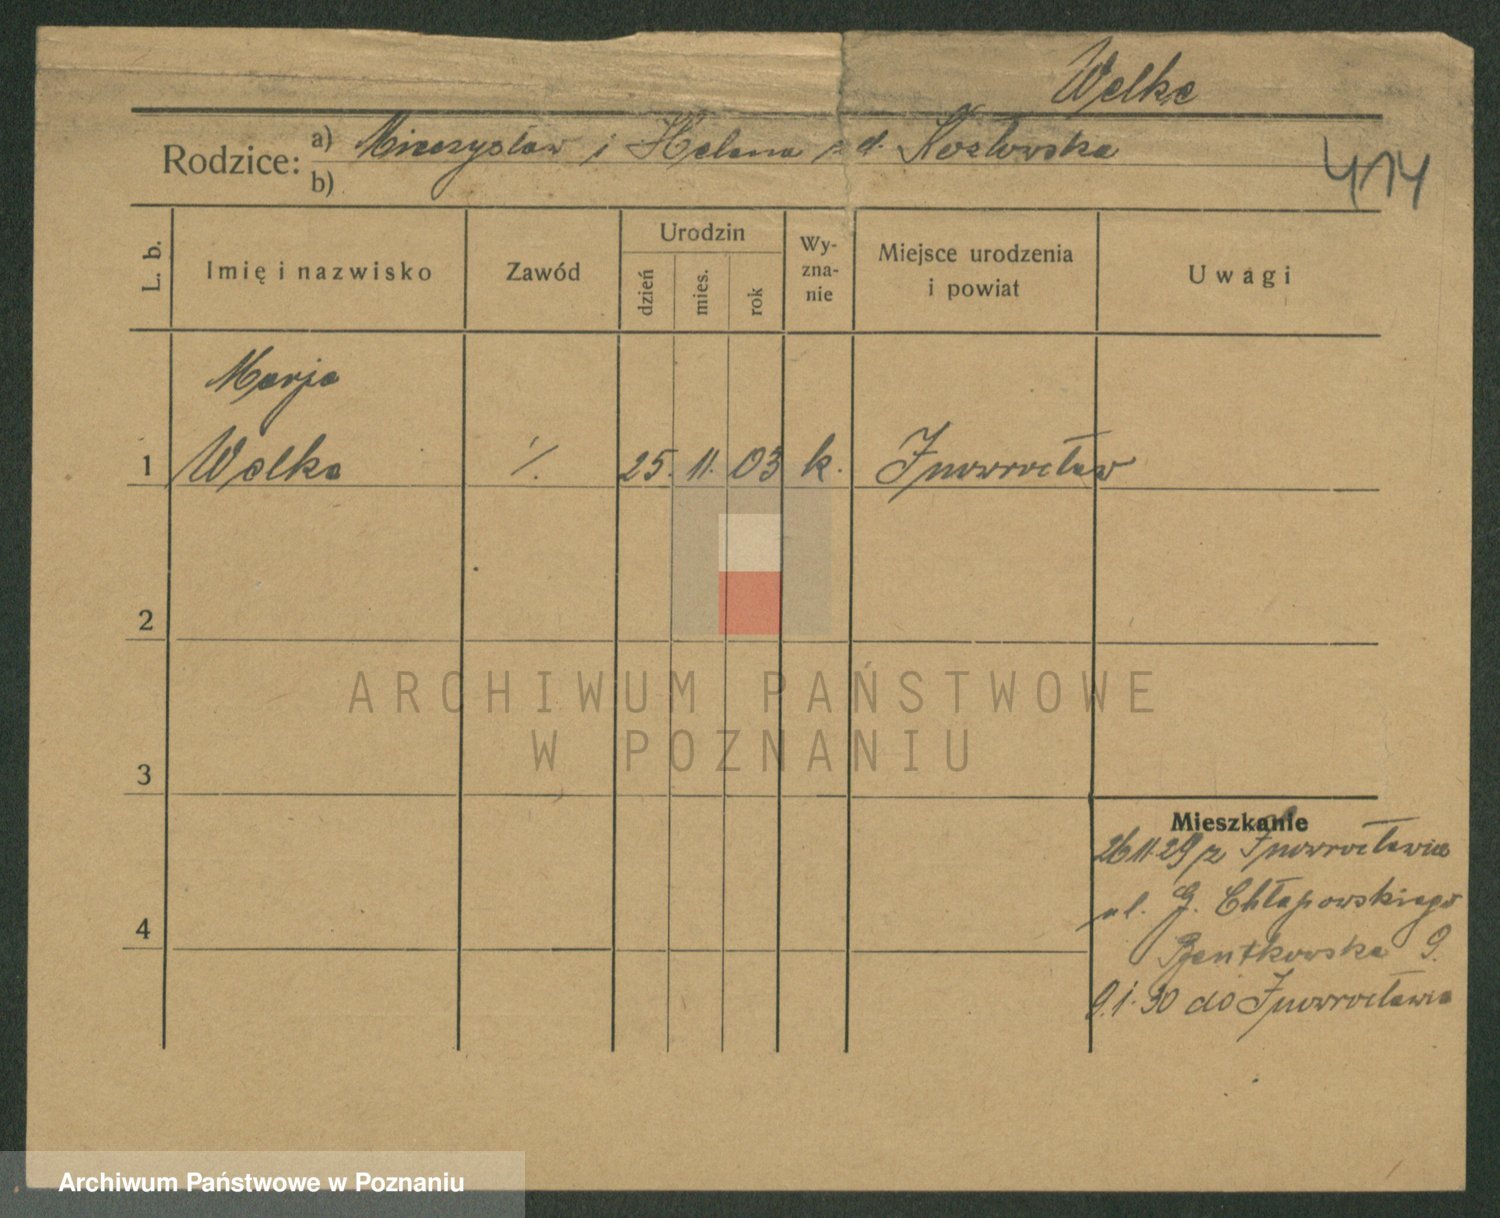 Welke
Rodzice: a) Mieczysław i Helena z d. Kozłowska
b)
414
L. b.
Imię i nazwisko
Zawód
Urodzin
dzień
mies.
rok
Wy-
zna-
nie
Miejsce urodzenia
i powiat
Uwagi
Marja
1 Welke ·/. 25. 11. 03 k. Inowrocław
2
3
4
Mieszkanie
26 11 29 z Inowrocławia
ul. J. Chłapowskiego
Bentkowska 9.
9.1.30 do Inowrocławia
ARCHIWUM PAŃSTWOWE
W POZNANIU
Archiwum Państwowe w Poznaniu